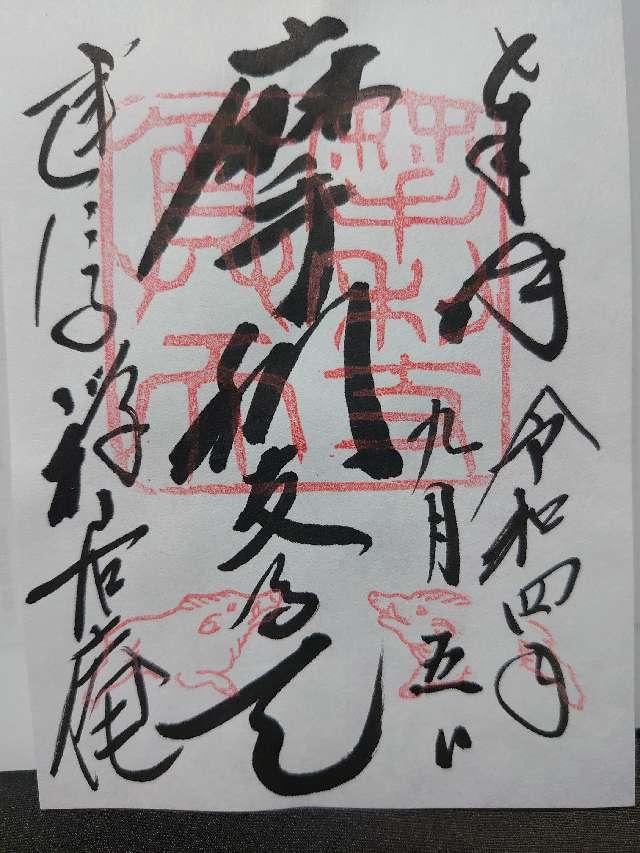 奉拝 令和四年
九月五日
摩利支尊天
建仁寺禅居庵